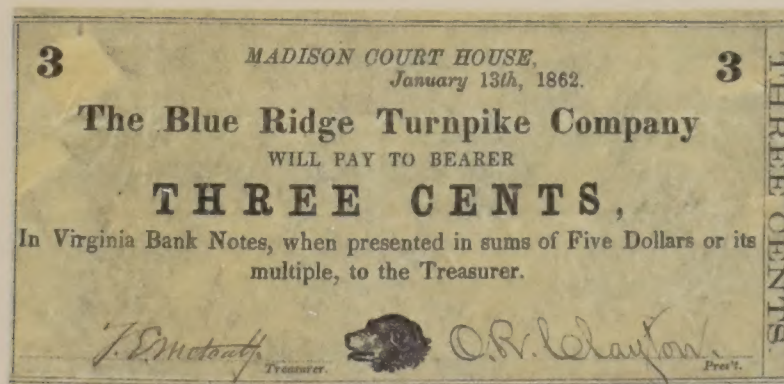 3 MADISON COURT HOUSE, 3
January 13th, 1862.
The Blue Ridge Turnpike Company
WILL PAY TO BEARER
THREE CENTS,
In Virginia Bank Notes, when presented in sums of Five Dollars or its
multiple, to the Treasurer.
O.R. Clayton.
Treasurer. Pres't.
THREE CENTS.